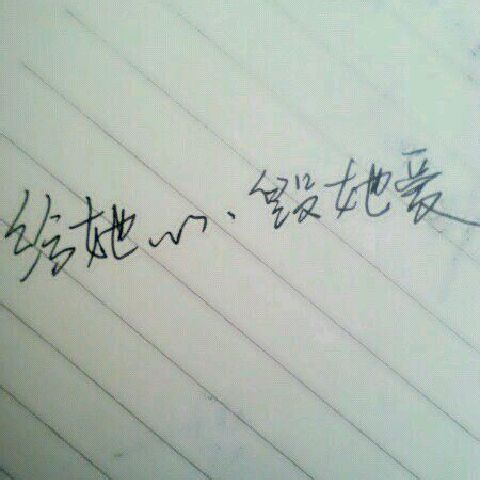 给她心、毁她爱